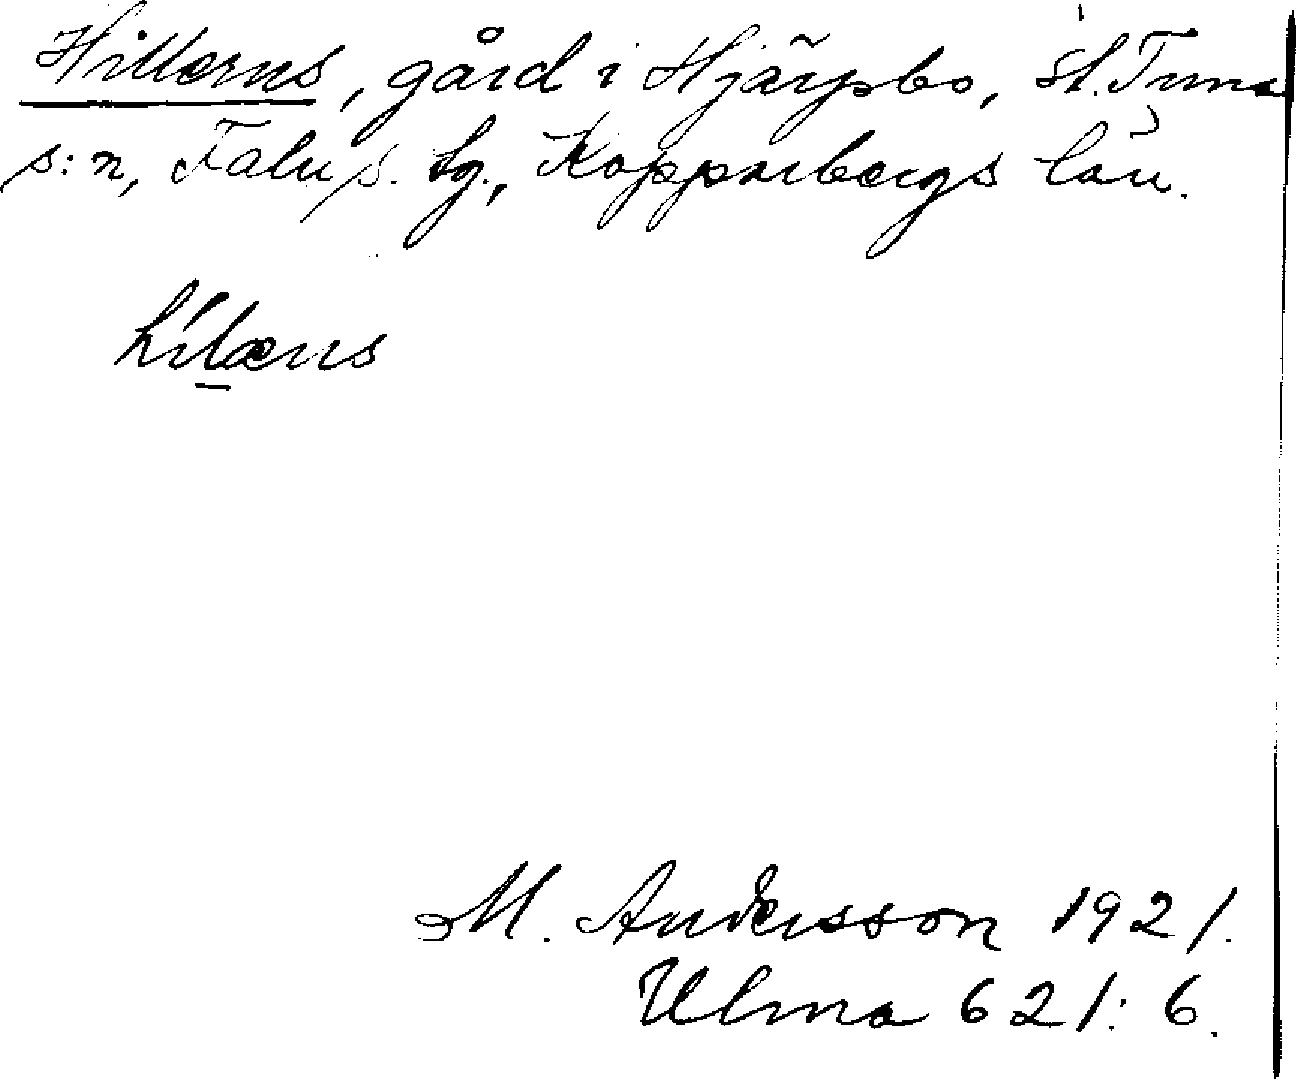 Hillerns, gård i Hjärpbo, St. Tuna
s:n, Falu s. tg., Kopparbergs län.
hílæns
M. Andersson 1921.
Ulma 621:6.